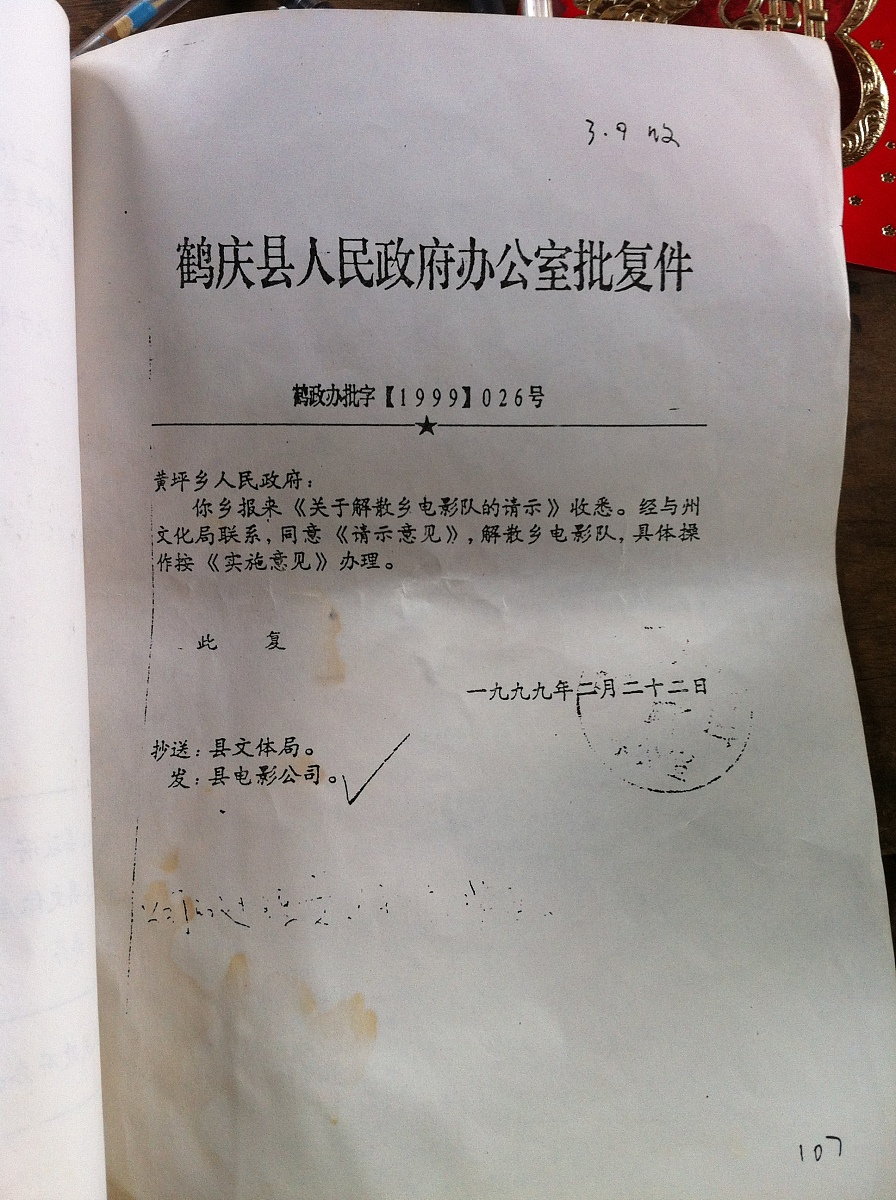 3.9 收
鹤庆县人民政府办公室批复件
鹤政办批字【1999】026号
黄坪乡人民政府：
你乡报来《关于解散乡电影队的请示》收悉。经与州
文化局联系，同意《请示意见》，解散乡电影队，具体操
作按《实施意见》办理。
此 复
一九九九年二月二十二日
抄送：县文体局。
发：县电影公司。
107